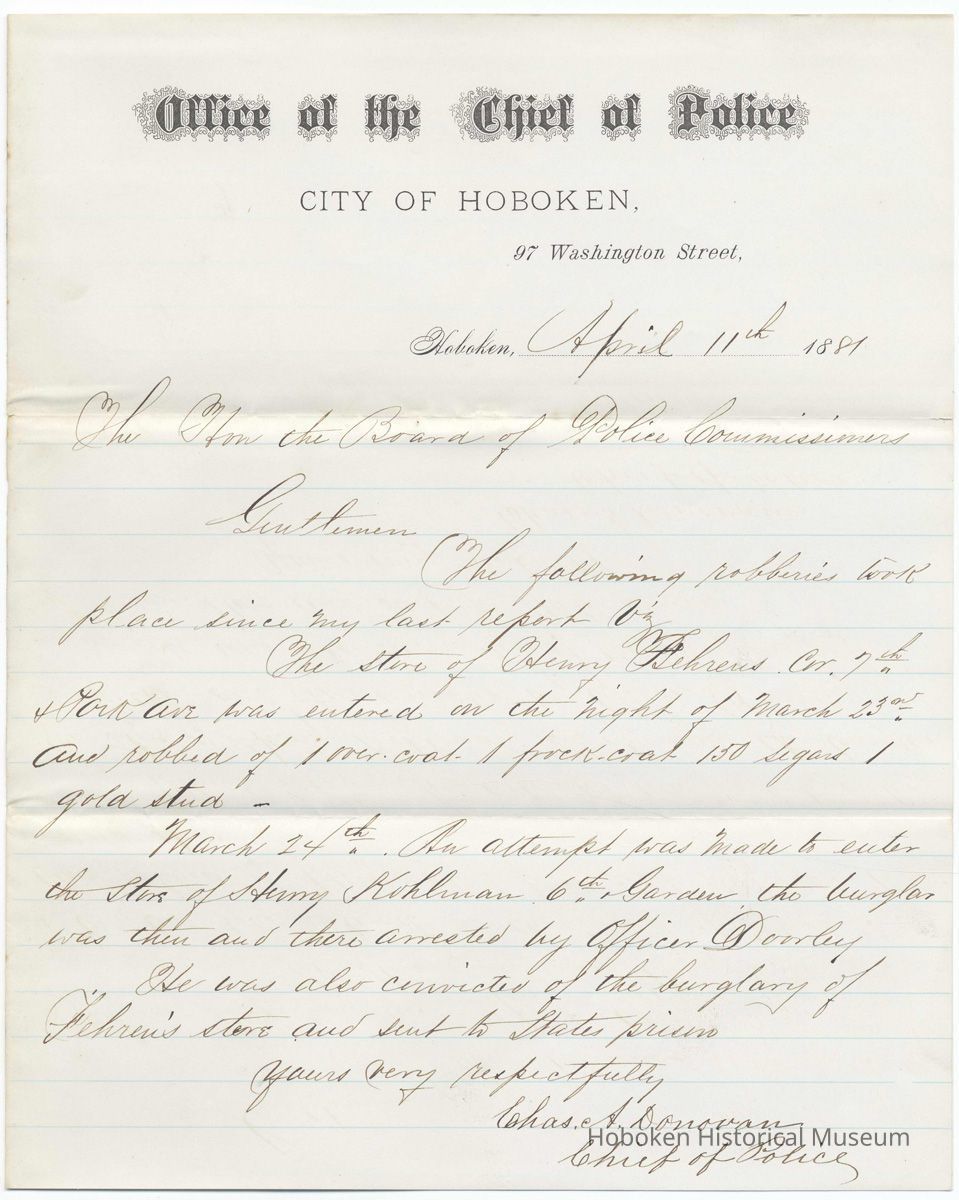 Office of the Chief of Police
CITY OF HOBOKEN,
97 Washington Street,
Hoboken, April 11th 1881
The Hon the Board of Police Commissioners
Gentlemen
The following robberies took
place since my last report Viz
The store of Henry Fehrens. Cor. 7th
& Park Ave was entered on the night of March 23rd
and robbed of 1 over-coat 1 frock-coat 150 segars 1
gold stud -
March 24th. An attempt was made to enter
the store of Henry Kohlman 6th & Garden, the burglar
was then and there arrested by Officer Doorley
He was also convicted of the burglary of
Fehren's store and sent to States prison
Yours very respectfully
Chas. A. Donovan
Chief of Police
Hoboken Historical Museum